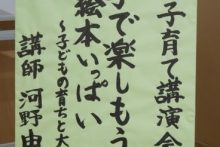 子育て講演会
子で楽しもう
絵本いっぱい
～子どもの育ちと大
講師 河野由